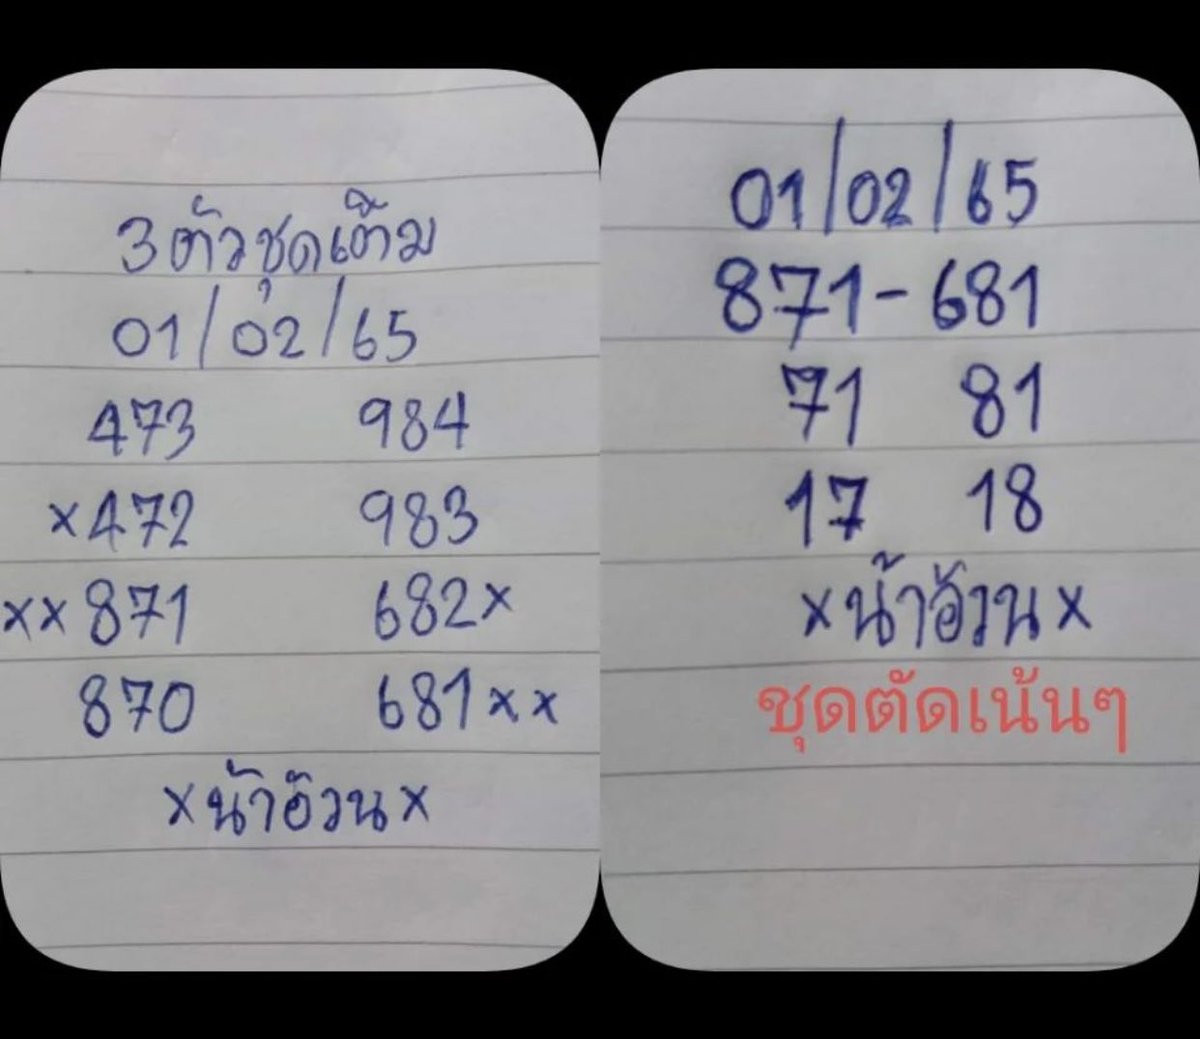 3ตัวชุดเต็ม
01/02/65
473 984
×472 983
××871 682×
870 681××
×น้าอ้วน×
01/02/65
871-681
71 81
17 18
×น้ำอ้วน×
ชุดตัดเน้นๆ